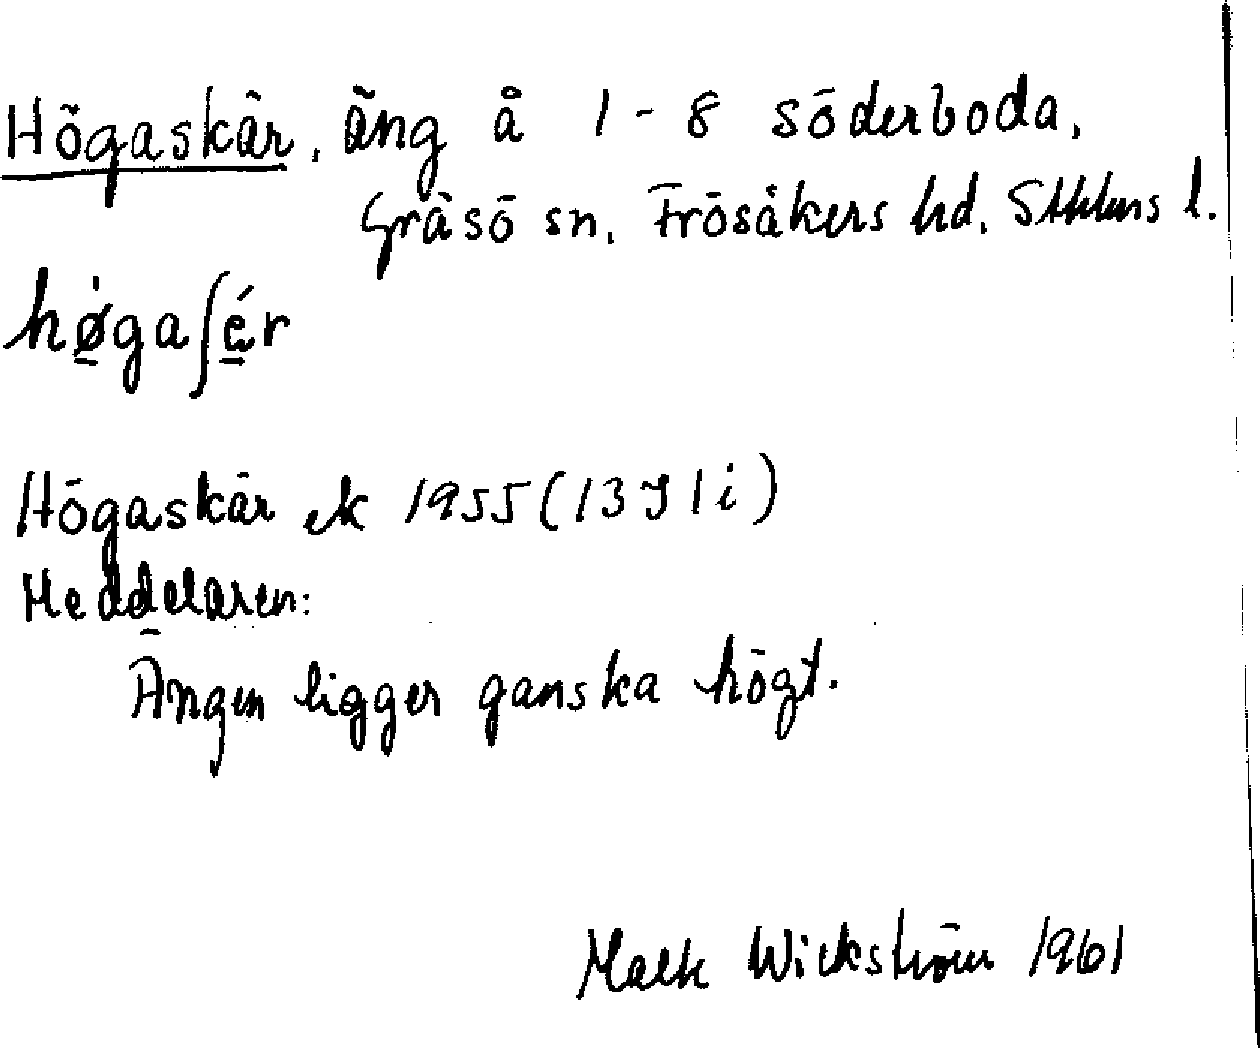 Högaskär, äng å 1-8 Söderboda,
Gräsö sn, Frösåkers hd, Sthlms l.
hø̱gaʃé̱r
Högaskär ek 1955 (13 J 1 i)
Meddelaren:
Ängen ligger ganska högt.
Wickström 1961